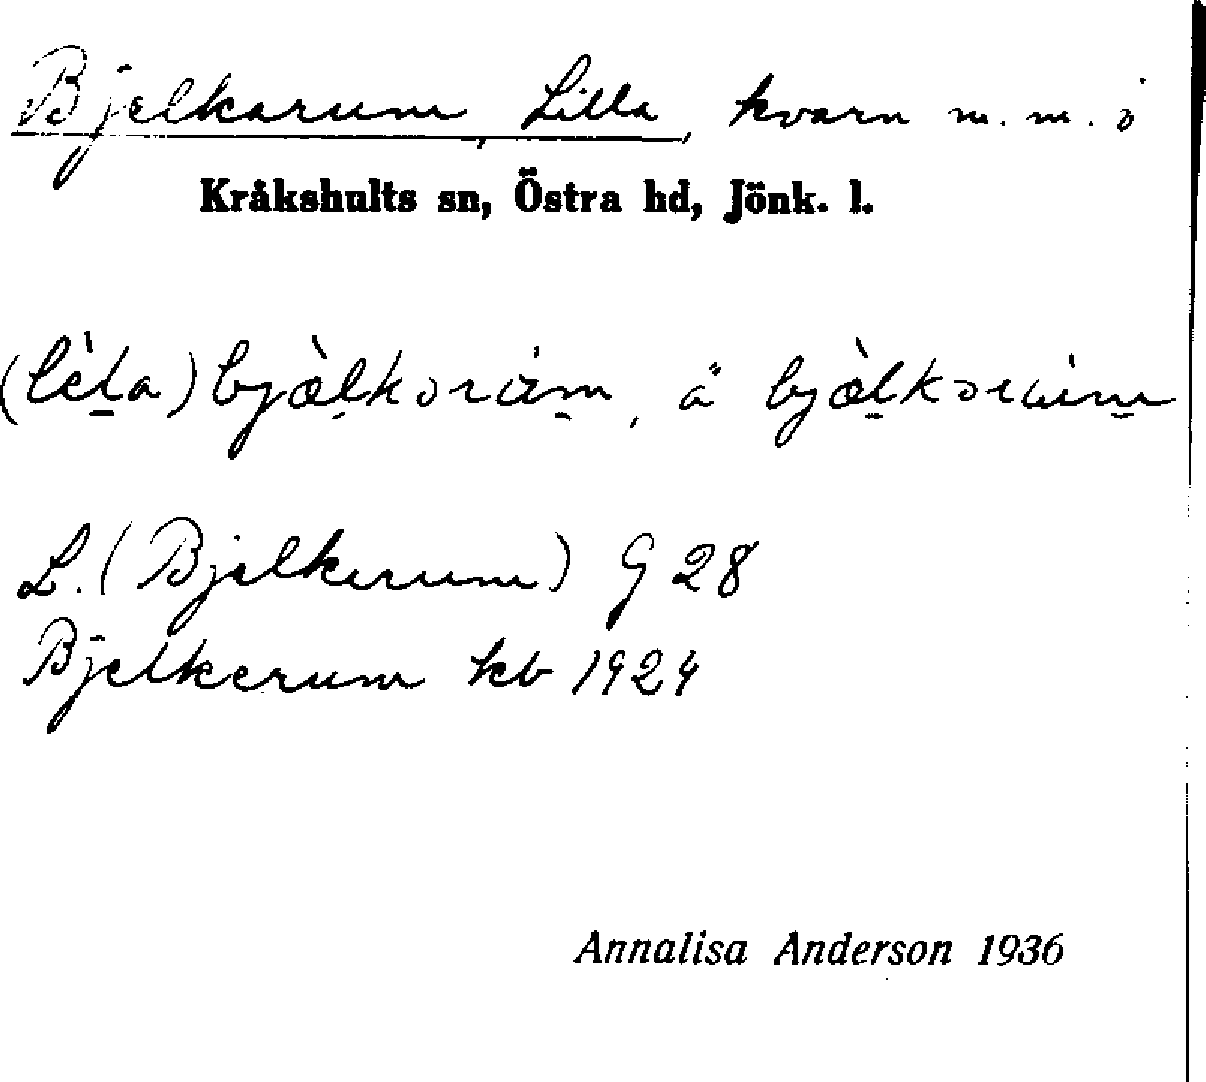 Bjelkarum, Lilla, kvarn m.m. i
Kråkshults sn, Östra hd, Jönk. l.
(lèta) bjæ̀lkorùm, å bjæ̀lkorùm
L. (Bjelkerum) G 28
Bjelkerum kb 1924
Annalisa Anderson 1936